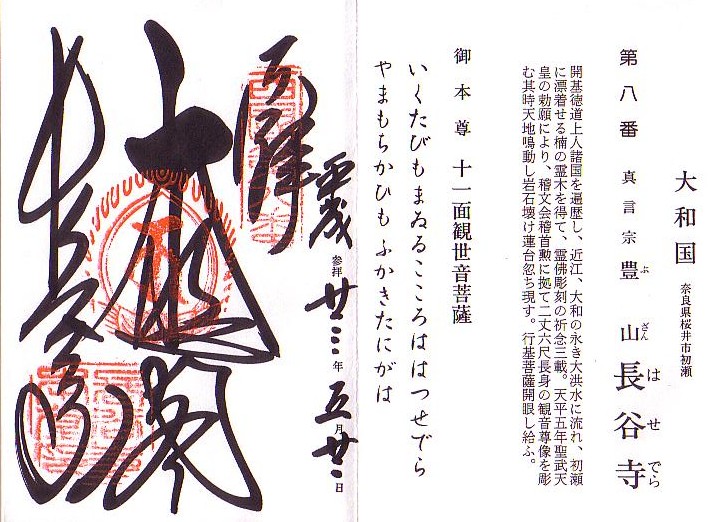 大和国
奈良県桜井市初瀬
第八番 真言宗 豊山 長谷寺
ぶ ざん は せ でら
開基徳道上人諸国を遍歴し、近江、大和の永き大洪水に流れ、初瀬
に漂着せる楠の霊木を得て、霊佛彫刻の祈念三載。天平五年聖武天
皇の勅願により、稽文会稽首勲に拠て二丈六尺長身の観音尊像を彫
む其時天地鳴動し岩石壊け蓮台忽ち現す。行基菩薩開眼し給ふ。
御本尊 十一面観世音菩薩
いくたびもまゐるこころははつせでら
やまもちかひもふかきたにがは
平成
参拝
廿三年五月廿二日
奉拝
大悲閣
長谷寺